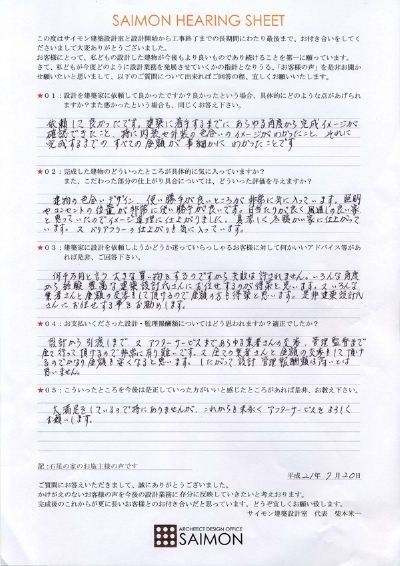 SAIMON HEARING SHEET
この度はサイモン建築設計室と設計開始から工事終了までの長期間にわたり最後まで、お付き合いをしてくださいまして大変ありがとうございました。
お客様にとって、私どもの設計した建物が今後もより良いものであり続けることを第一に願っています。
さて、私どもが今度どのように設計業務を発展させていくかの指針となりうる、「お客様の声」を是非お聞かせ願いたいと思いまして、以下のご質問について出来ればご回答の程、宜しくお願いいたします。
★01：設計を建築家に依頼して良かったですか？良かったという場合、具体的にどのような点があげられますか？また悪かったという場合も、同じくお答え下さい。
依頼して良かったです。建築に着手するまでに あらゆる角度から完成イメージが
確認できたこと、特に内装や外装の色合いのイメージがわかったこと、それに
完成するまでの すべての金額が 事細かに わかったことです
★02：完成した建物のどういったところが具体的に気に入っていますか？
また、こだわった部分の仕上がり具合については、どういった評価を与えますか？
建物の色合い、デザイン、使い勝手が良いところが非常に気に入っています。照明
やコンセントの位置が非常に使い勝手が良いです。日当たりが良く風通しの良い家
と思っていたのでイメージ通りに仕上がりました。夏涼しく冬暖かい家に仕上がって
います。又 バリアフリーの仕上がりも気に入っています。
★03：建築家に設計を依頼しようかどうか迷っていらっしゃるお客様に対して何かいいアドバイス等があれば是非、ご回答下さい。
何千万円と言う 大きな買い物をするのですから失敗は許されません。いろんな角度
から経験 豊富な建築設計代さんにお任せするのが得策と思います。又いろんな
業者さんと金額の交渉をして頂けるので金額の方も得策と思います。是非建築設計代
さんにお任せする事をお勧めします。
★04：お支払いくださった設計・監理報酬額についてはどう思われますか？適正でしたか？
設計から 引渡しまで 又 アフターサービスまであらゆる業者さんの交渉、管理監督まで
全て行って頂けるので非常に有り難いです。又 全ての業者さんと金額の交渉をして頂け
るのでかなり金額も安くなると思います。したがって 設計 管理報酬額は高いとは
思いません。
★05：こういったところを今後は是正していった方がいいと感じたところがあれば是非、お教え下さい。
大満足をしているので特にありませんが、これからも末永く アフターサービスをよろしく
お願いします。
記：石尾の家のお施主様の声です
平成21年9月20日
ご質問にお答えいただきまして、誠にありがとうございました。
かけがえのないお客様の声を今後の設計業務に存分に反映していきたいと考えております。
完成後のこれからが更に長いお客様とのお付き合いだと思っています。どうぞ宜しくお願い致します。
サイモン建築設計室　代表　柴木米一
ARCHITECT DESIGN OFFICE
SAIMON